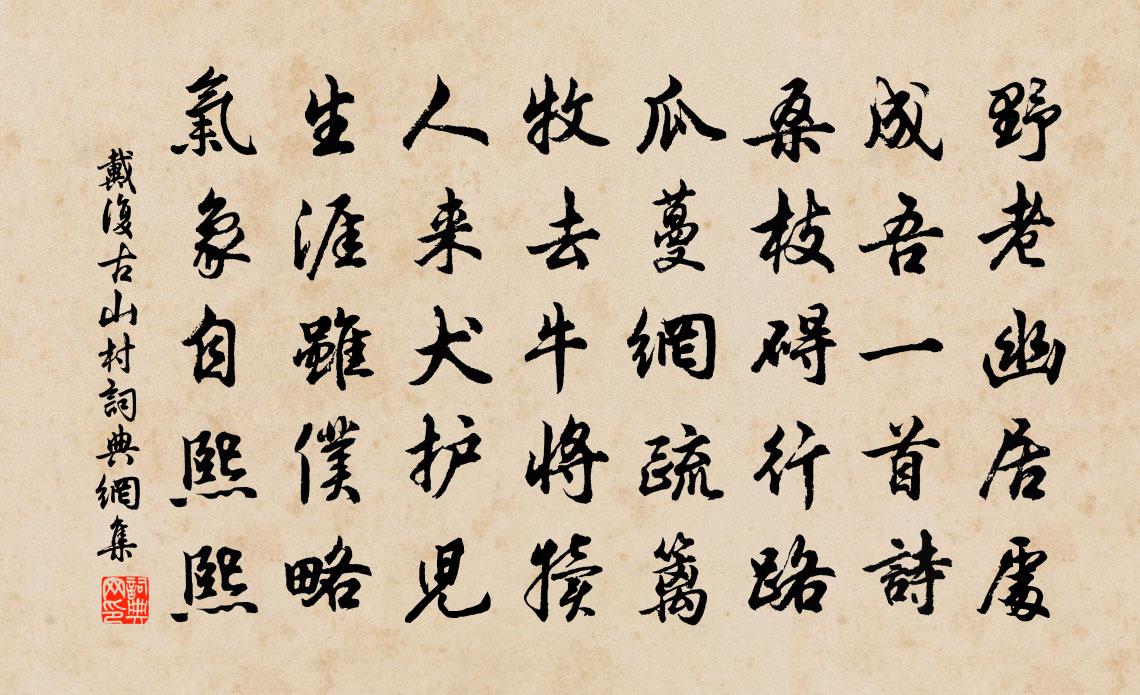 野老幽居處
成吾一首詩
桑枝碍行路
瓜蔓網疏篱
牧去牛將犢
人来犬护児
生涯雖僕略
氣象自熙熙
戴復古山村詞典網集
詞典网印